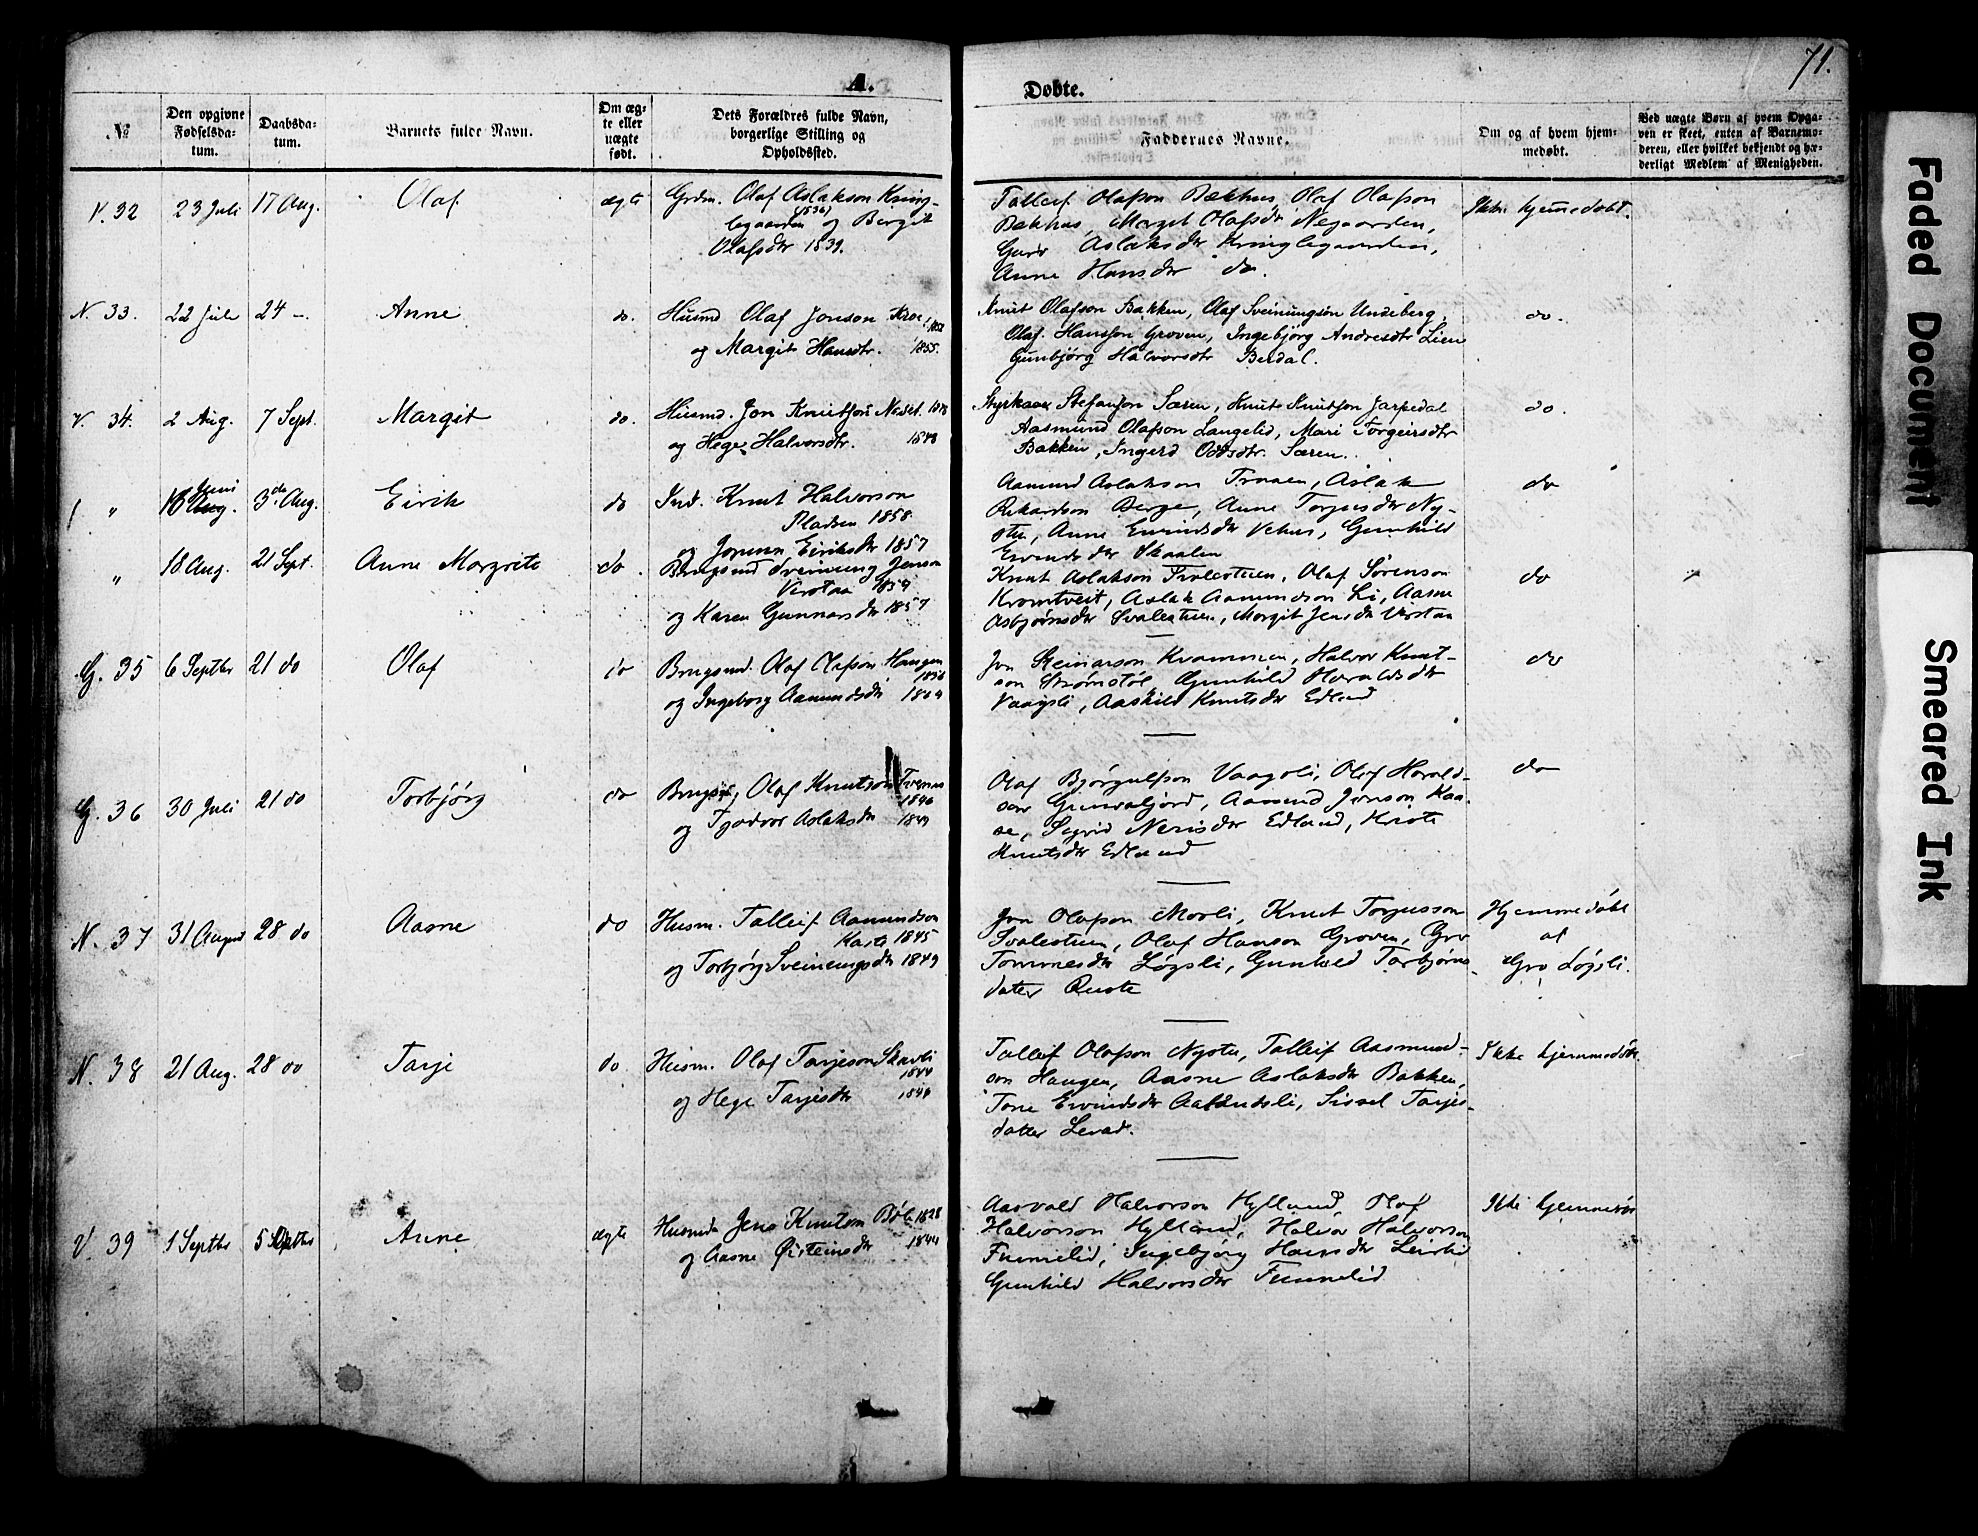 71.
A. Døbte.
№
Den opgivne Fødselsdatum.
Daabsdatum.
Barnets fulde Navn.
Om ægte eller uægte født.
Dets Forældres fulde Navn, borgerlige Stilling og Opholdssted.
Faddernes Navne.
Om og af hvem hjemmedøbt.
Ved uægte Børn af hvem Opgaven er skeet, enten af Barnemoderen, eller hvilket bekjendt og hæderligt Medlem af Menigheden.
V. 32 23 Juli 17 Aug. Olaf ægte
Grdm. Olaf Aslakson Kring-
legaarden 1836 og Bergit
Olafsdtr 1839.
Talleif Olafson Bækhus, Olaf Olafson
Bækhus, Margit Olafsdtr Negaarden,
Guro Aslaksdtr Kringlegaarden,
Anne Hansdtr do.
Ikke hjemmedøbt.
N. 33. 22 Juli 24 – Anne do.
Husmd Olaf Jonson
og Margit Hansdtr. 1855.
Knut Olafson Bakken, Olaf Sveinungson Undeberg,
Olaf Hansson Groven, Ingebjörg Andresdtr Lien
Gunbjörg Halvorsdtr Berdal.
do.
V. 34. 2 Aug. 7 Sept. Margit do.
Husmd. Jon Knutson Neset
og Hege Halvorsdtr. 1848
Styrkaar Stefanson Særen, Knut Knutson Jarpedal
Aasmund Olafson Langelid, Mari Torgeirsdtr
Bakken, Ingerd Oddsdtr. Særen.
do.
" 16 Juni 3de Aug. Eirik do
Ind. Knut Halvorson
Pladsen 1858.
og Jorunn Eiriksdtr 1857
Aamund Aslakson Traaen, Aslak
Rikardson Berge, Anne Torjusdtr Ny-
stu, Anne Eivindsdtr Vehus, Gunhild
Eivindsdtr Skaalen
do
" 18 Aug. 21 Sept. Anne Margrete do.
Brugsmd Sveinung Jenson
Verstaa 1859
og Karen Gunnarsdtr 1857
Knut Aslakson Svalestuen, Olaf Sørenson
Kromtveit, Aslak Aamundson Li, Aasne
Asbjørnsdtr Svalestuen, Margit Jensdtr Verstaa
do
G. 35 6 Septbr 21 do Olaf do
Brugsmd. Olaf Olafson Haugen
1856
og Ingeborg Aamundsdtr
Jon Steinarson Kvammen, Halvor Knut-
son Strømstøl, Gunhild Haraldsdtr
Vaagsli, Aashild Knutsdtr Edland
do
G. 36 30 Juli 21 do Torbjörg do
Olaf Knutson
1846
og Tjodvor Aslaksdtr 1849
Olaf Bjørgulfson Vaagsli, Olaf Harald-
son Grunvaljord, Aamund Jonson Kaa-
se, Sigrid Nerisdtr Edland,
Knutsdtr Edland
do
N. 37 31 August 28 do Aasne do
Husm. Talleif Aamundson
1845
og Torbjörg Sveinungsdtr 1849
Jon Olafson Morli, Knut Torjusson
Svalestuen, Olaf Hanson Groven, Gro
Tommesdtr Løgsli, Gunhild Torbjørns-
datter Quste
Hjemmedøbt
af
Gro Løgsli.
N. 38 21 Aug. 28 do Tarje do
Husm. Olaf Tarjeson Skavli
1844
og Hege Tarjesdtr 1846
Talleif Olafson Nystu, Talleif Aasmund-
son Haugen, Aasne Aslaksdtr Bakken,
Tone Eivindsdtr Sissel Tarjes-
datter Levad.
Ikke hjemmedøbt.
V. 39 1 Septbr 5 Anne ægte
Husmd Jens Knutson Bøle 1828
og Aasne Øisteinsdtr 1844
Aasvald Halvorson Hylland, Olaf
Halvorson Hylland, Halvor Halvorson
Funnelid, Ingebjörg Hansdtr
Gunhild Halvorsdtr Funnelid
Ikke hjemmedøbt
Faded Document
Smeared Ink